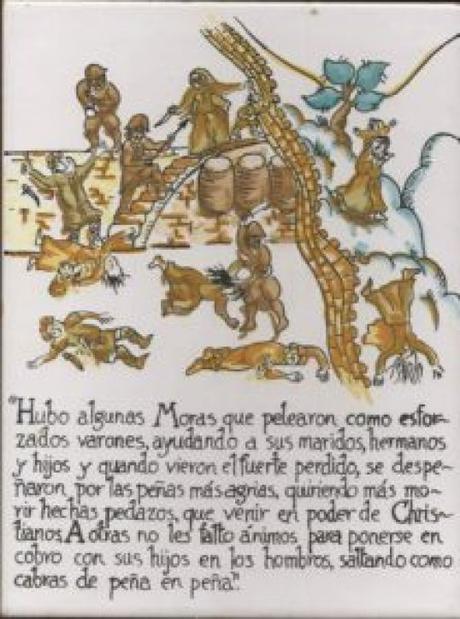 "Hubo algunas Moras que pelearon como esfor-
zados varones, ayudando a sus maridos, hermanos
y hijos y quando vieron el fuerte perdido, se despe-
ñaron por las peñas más agrias, quiriendo más mo-
rir hechas pedazos, que venir en poder de Chris-
tianos. A otras no les falto ánimos para ponerse en
cobro con sus hijos en los hombros, saltando como
cabras de peña en peña".